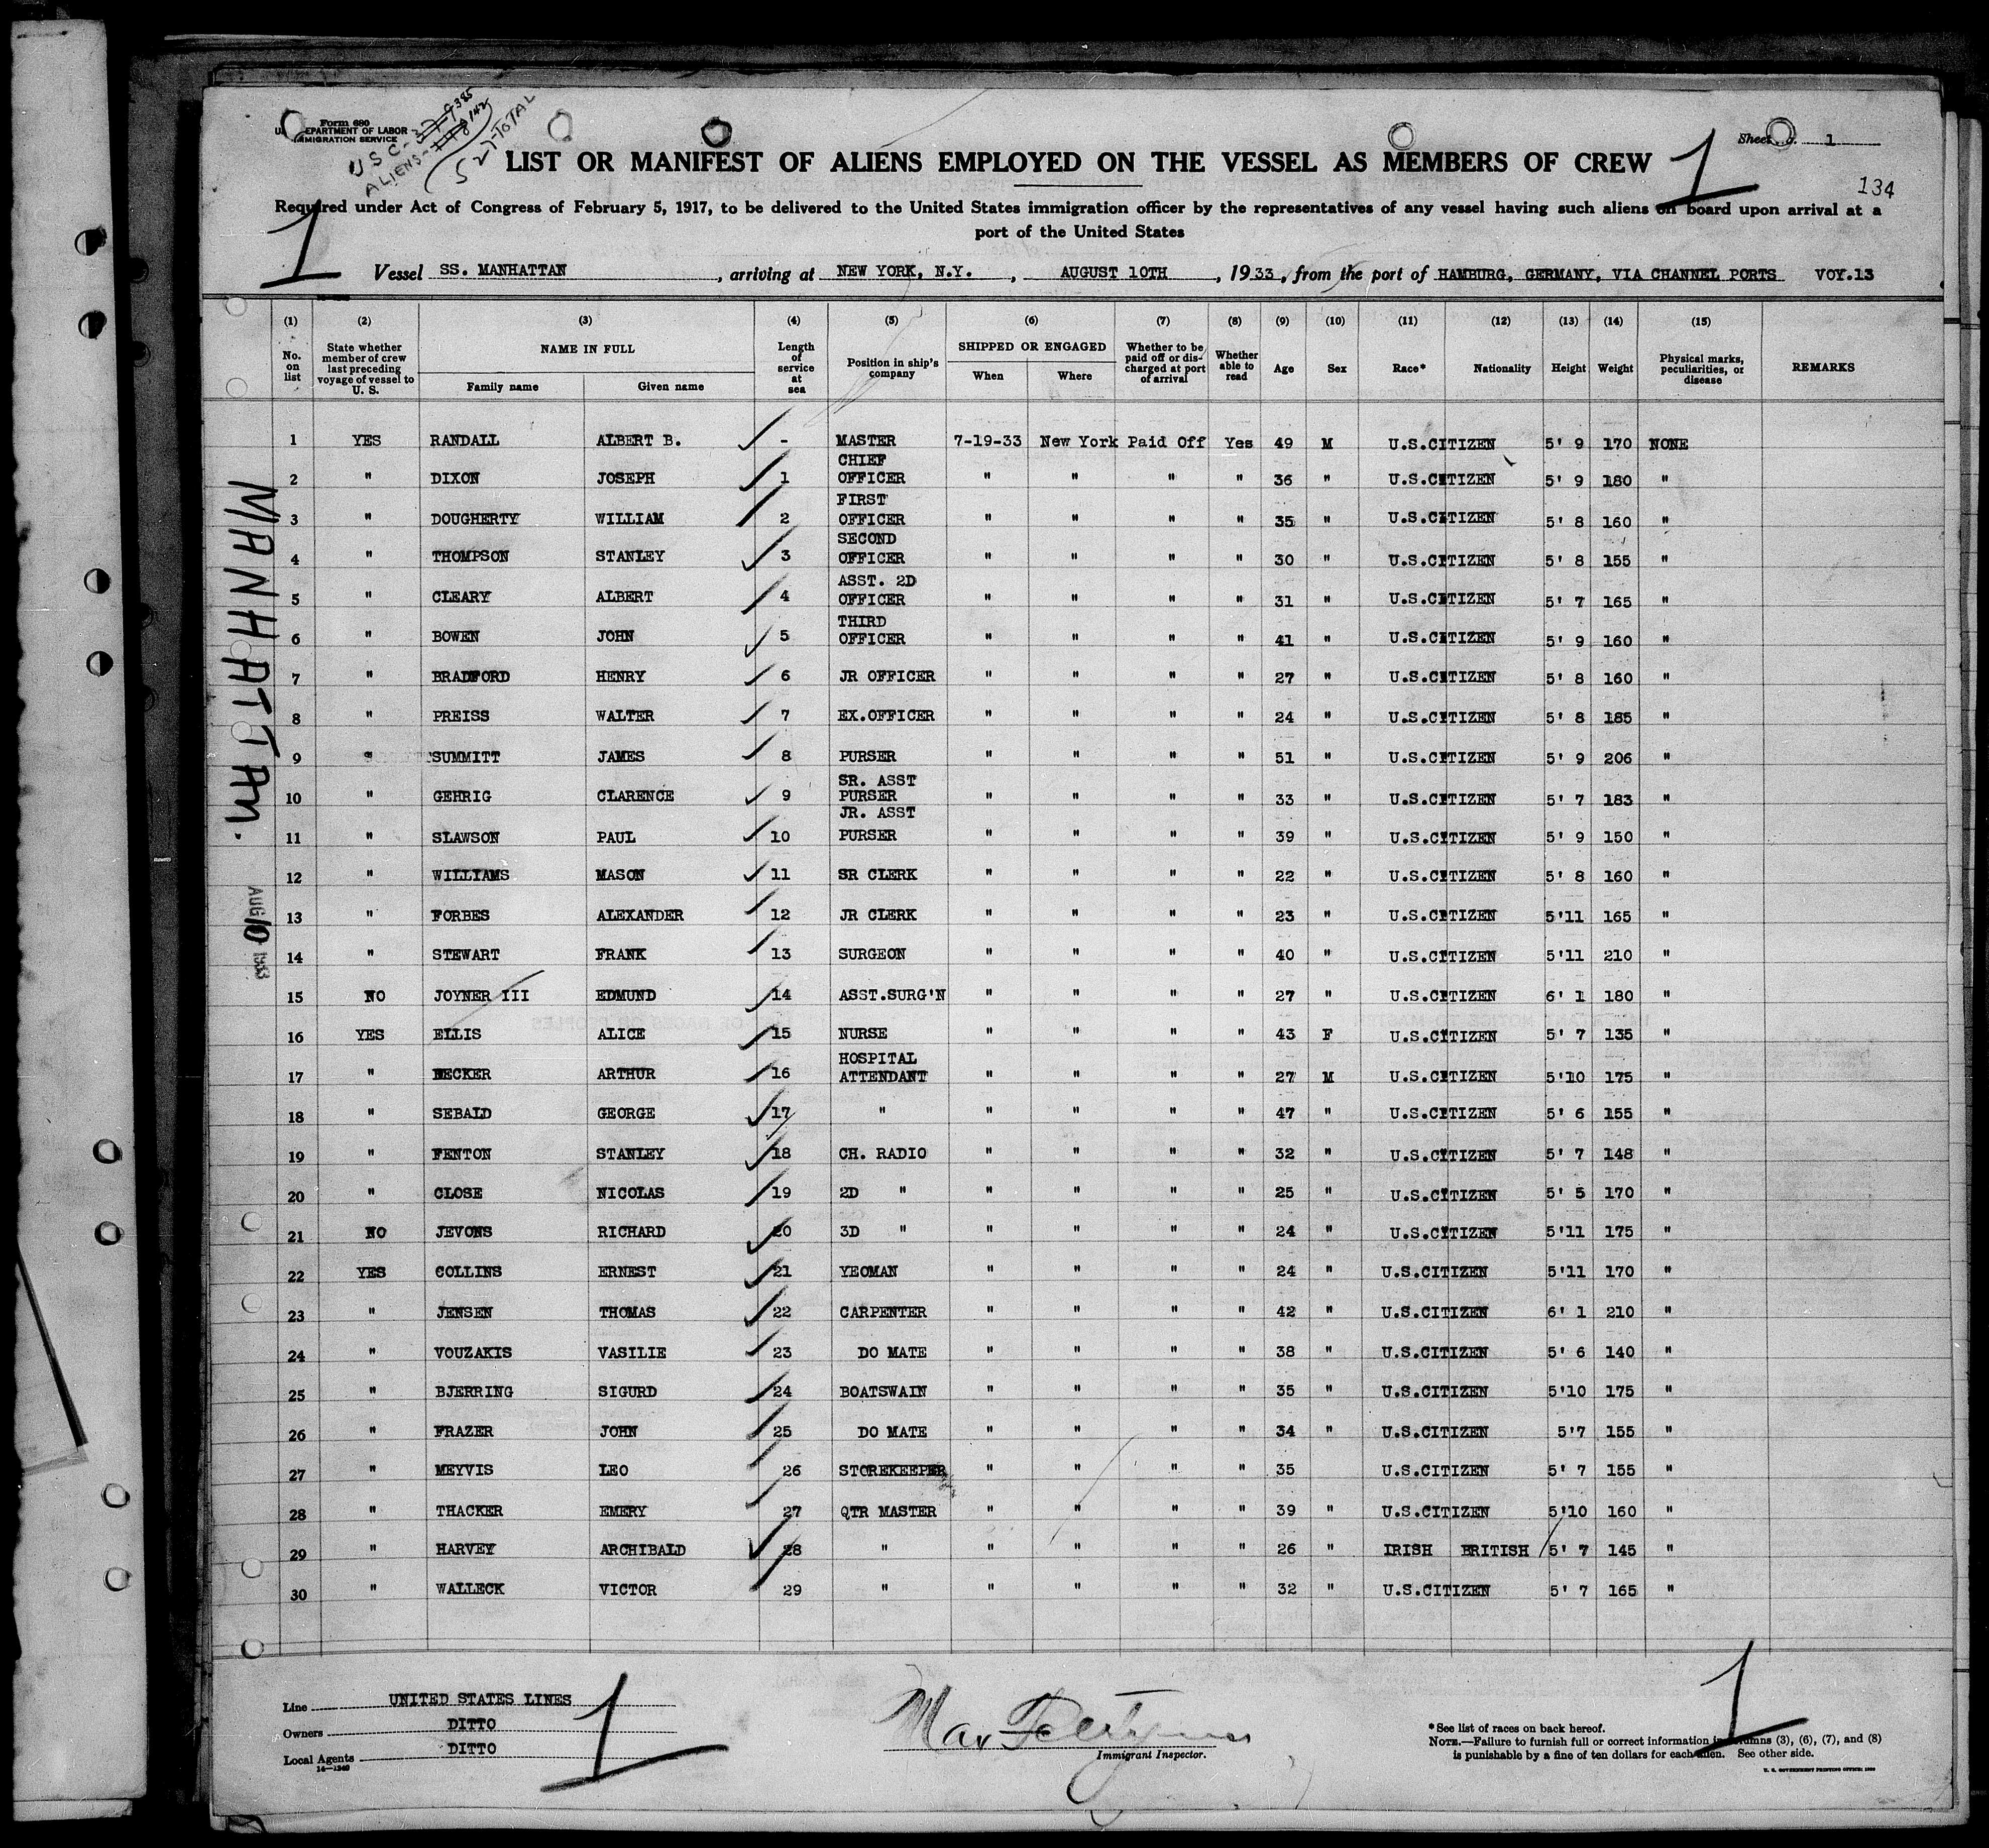 Form 680
U. S. DEPARTMENT OF LABOR
IMMIGRATION SERVICE
USC - 379 385
ALIENS - 148 142
527-TOTAL
Sheet No. 1
134
LIST OR MANIFEST OF ALIENS EMPLOYED ON THE VESSEL AS MEMBERS OF CREW
1
1
Required under Act of Congress of February 5, 1917, to be delivered to the United States immigration officer by the representatives of any vessel having such aliens on board upon arrival at a
port of the United States
Vessel SS. MANHATTAN, arriving at NEW YORK, N.Y., AUGUST 10TH, 1933, from the port of HAMBURG, GERMANY, VIA CHANNEL PORTS VOY.13
(1) (2) (3) (4) (5) (6) (7) (8) (9) (10) (11) (12) (13) (14) (15)
No. on list State whether member of crew last preceding voyage of vessel to U. S. NAME IN FULL Length of service at sea Position in ship's company SHIPPED OR ENGAGED Whether to be paid off or discharged at port of arrival Whether able to read Age Sex Race* Nationality Height Weight Physical marks, peculiarities, or disease REMARKS
Family name Given name When Where
1 YES RANDALL ALBERT B. - MASTER 7-19-33 New York Paid Off Yes 49 M U.S.CITIZEN 5' 9 170 NONE
2 " DIXON JOSEPH 1 CHIEF OFFICER " " " " 36 " U.S.CITIZEN 5' 9 180 "
3 " DOUGHERTY WILLIAM 2 FIRST OFFICER " " " " 35 " U.S.CITIZEN 5' 8 160 "
4 " THOMPSON STANLEY 3 SECOND OFFICER " " " " 30 " U.S.CITIZEN 5' 8 155 "
5 " CLEARY ALBERT 4 ASST. 2D OFFICER " " " " 31 " U.S.CITIZEN 5' 7 165 "
6 " BOWEN JOHN 5 THIRD OFFICER " " " " 41 " U.S.CITIZEN 5' 9 160 "
7 " BRADFORD HENRY 6 JR OFFICER " " " " 27 " U.S.CITIZEN 5' 8 160 "
8 " PREISS WALTER 7 EX.OFFICER " " " " 24 " U.S.CITIZEN 5' 8 185 "
9 " SUMMITT JAMES 8 PURSER " " " " 51 " U.S.CITIZEN 5' 9 206 "
10 " GEHRIG CLARENCE 9 SR. ASST PURSER " " " " 33 " U.S.CITIZEN 5' 7 183 "
11 " SLAWSON PAUL 10 JR. ASST PURSER " " " " 39 " U.S.CITIZEN 5' 9 150 "
12 " WILLIAMS MASON 11 SR CLERK " " " " 22 " U.S.CITIZEN 5' 8 160 "
13 " FORBES ALEXANDER 12 JR CLERK " " " " 23 " U.S.CITIZEN 5'11 165 "
14 " STEWART FRANK 13 SURGEON " " " " 40 " U.S.CITIZEN 5'11 210 "
15 NO JOYNER III EDMUND 14 ASST.SURG'N " " " " 27 " U.S.CITIZEN 6' 1 180 "
16 YES ELLIS ALICE 15 NURSE " " " " 43 F U.S.CITIZEN 5' 7 135 "
17 " BECKER ARTHUR 16 HOSPITAL ATTENDANT " " " " 27 M U.S.CITIZEN 5'10 175 "
18 " SEBALD GEORGE 17 " " " " " 47 " U.S.CITIZEN 5' 6 155 "
19 " FENTON STANLEY 18 CH. RADIO " " " " 32 " U.S.CITIZEN 5' 7 148 "
20 " CLOSE NICOLAS 19 2D " " " " " 25 " U.S.CITIZEN 5' 5 170 "
21 NO JEVONS RICHARD 20 3D " " " " " 24 " U.S.CITIZEN 5'11 175 "
22 YES COLLINS ERNEST 21 YEOMAN " " " " 24 " U.S.CITIZEN 5'11 170 "
23 " JENSEN THOMAS 22 CARPENTER " " " " 42 " U.S.CITIZEN 6' 1 210 "
24 " VOUZAKIS VASILIE 23 DO MATE " " " " 38 " U.S.CITIZEN 5' 6 140 "
25 " BJERRING SIGURD 24 BOATSWAIN " " " " 35 " U.S.CITIZEN 5'10 175 "
26 " FRAZER JOHN 25 DO MATE " " " " 34 " U.S.CITIZEN 5'7 155 "
27 " MEYVIS LEO 26 STOREKEEPER " " " " 35 " U.S.CITIZEN 5' 7 155 "
28 " THACKER EMERY 27 QTR MASTER " " " " 39 " U.S.CITIZEN 5'10 160 "
29 " HARVEY ARCHIBALD 28 " " " " " 26 " IRISH BRITISH 5' 7 145 "
30 " WALLECK VICTOR 29 " " " " " 32 " U.S.CITIZEN 5' 7 165 "
MANHATTAN.
AUG 10 1933
Line UNITED STATES LINES
Owners DITTO
Local Agents DITTO
14—1240
1
Max
Immigrant Inspector.
1
*See list of races on back hereof.
NOTE.—Failure to furnish full or correct information in columns (3), (6), (7), and (8)
is punishable by a fine of ten dollars for each alien. See other side.
U. S. GOVERNMENT PRINTING OFFICE: